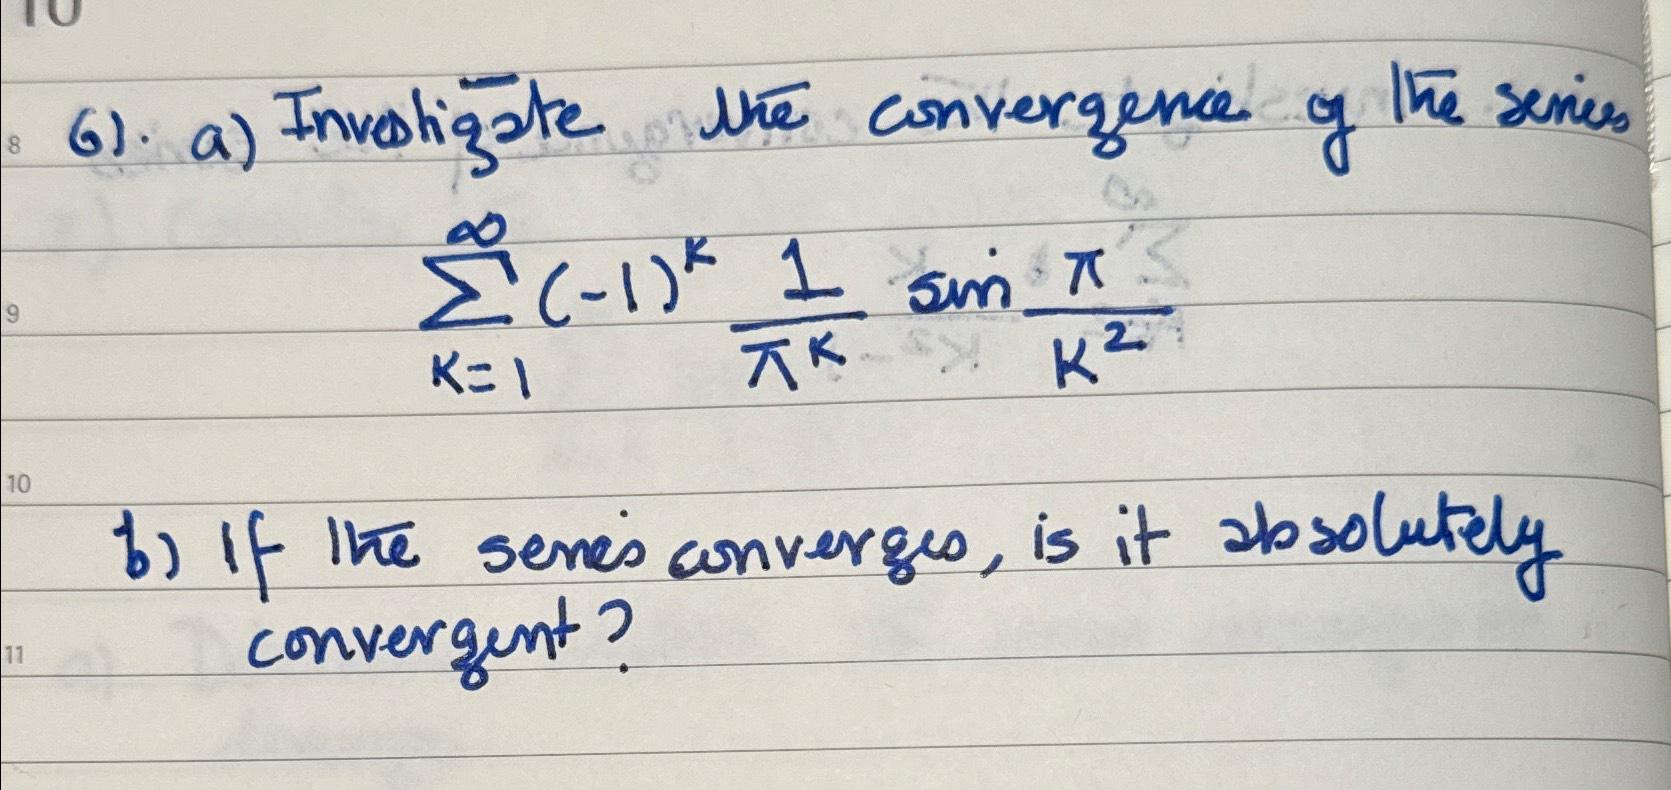 10
8
6). a) Investigate the convergence of the series
9
∞ ∑ k=1 (-1)^k 1/π^k sin π/k^2
10
b) If the series converges, is it absolutely
11
convergent?